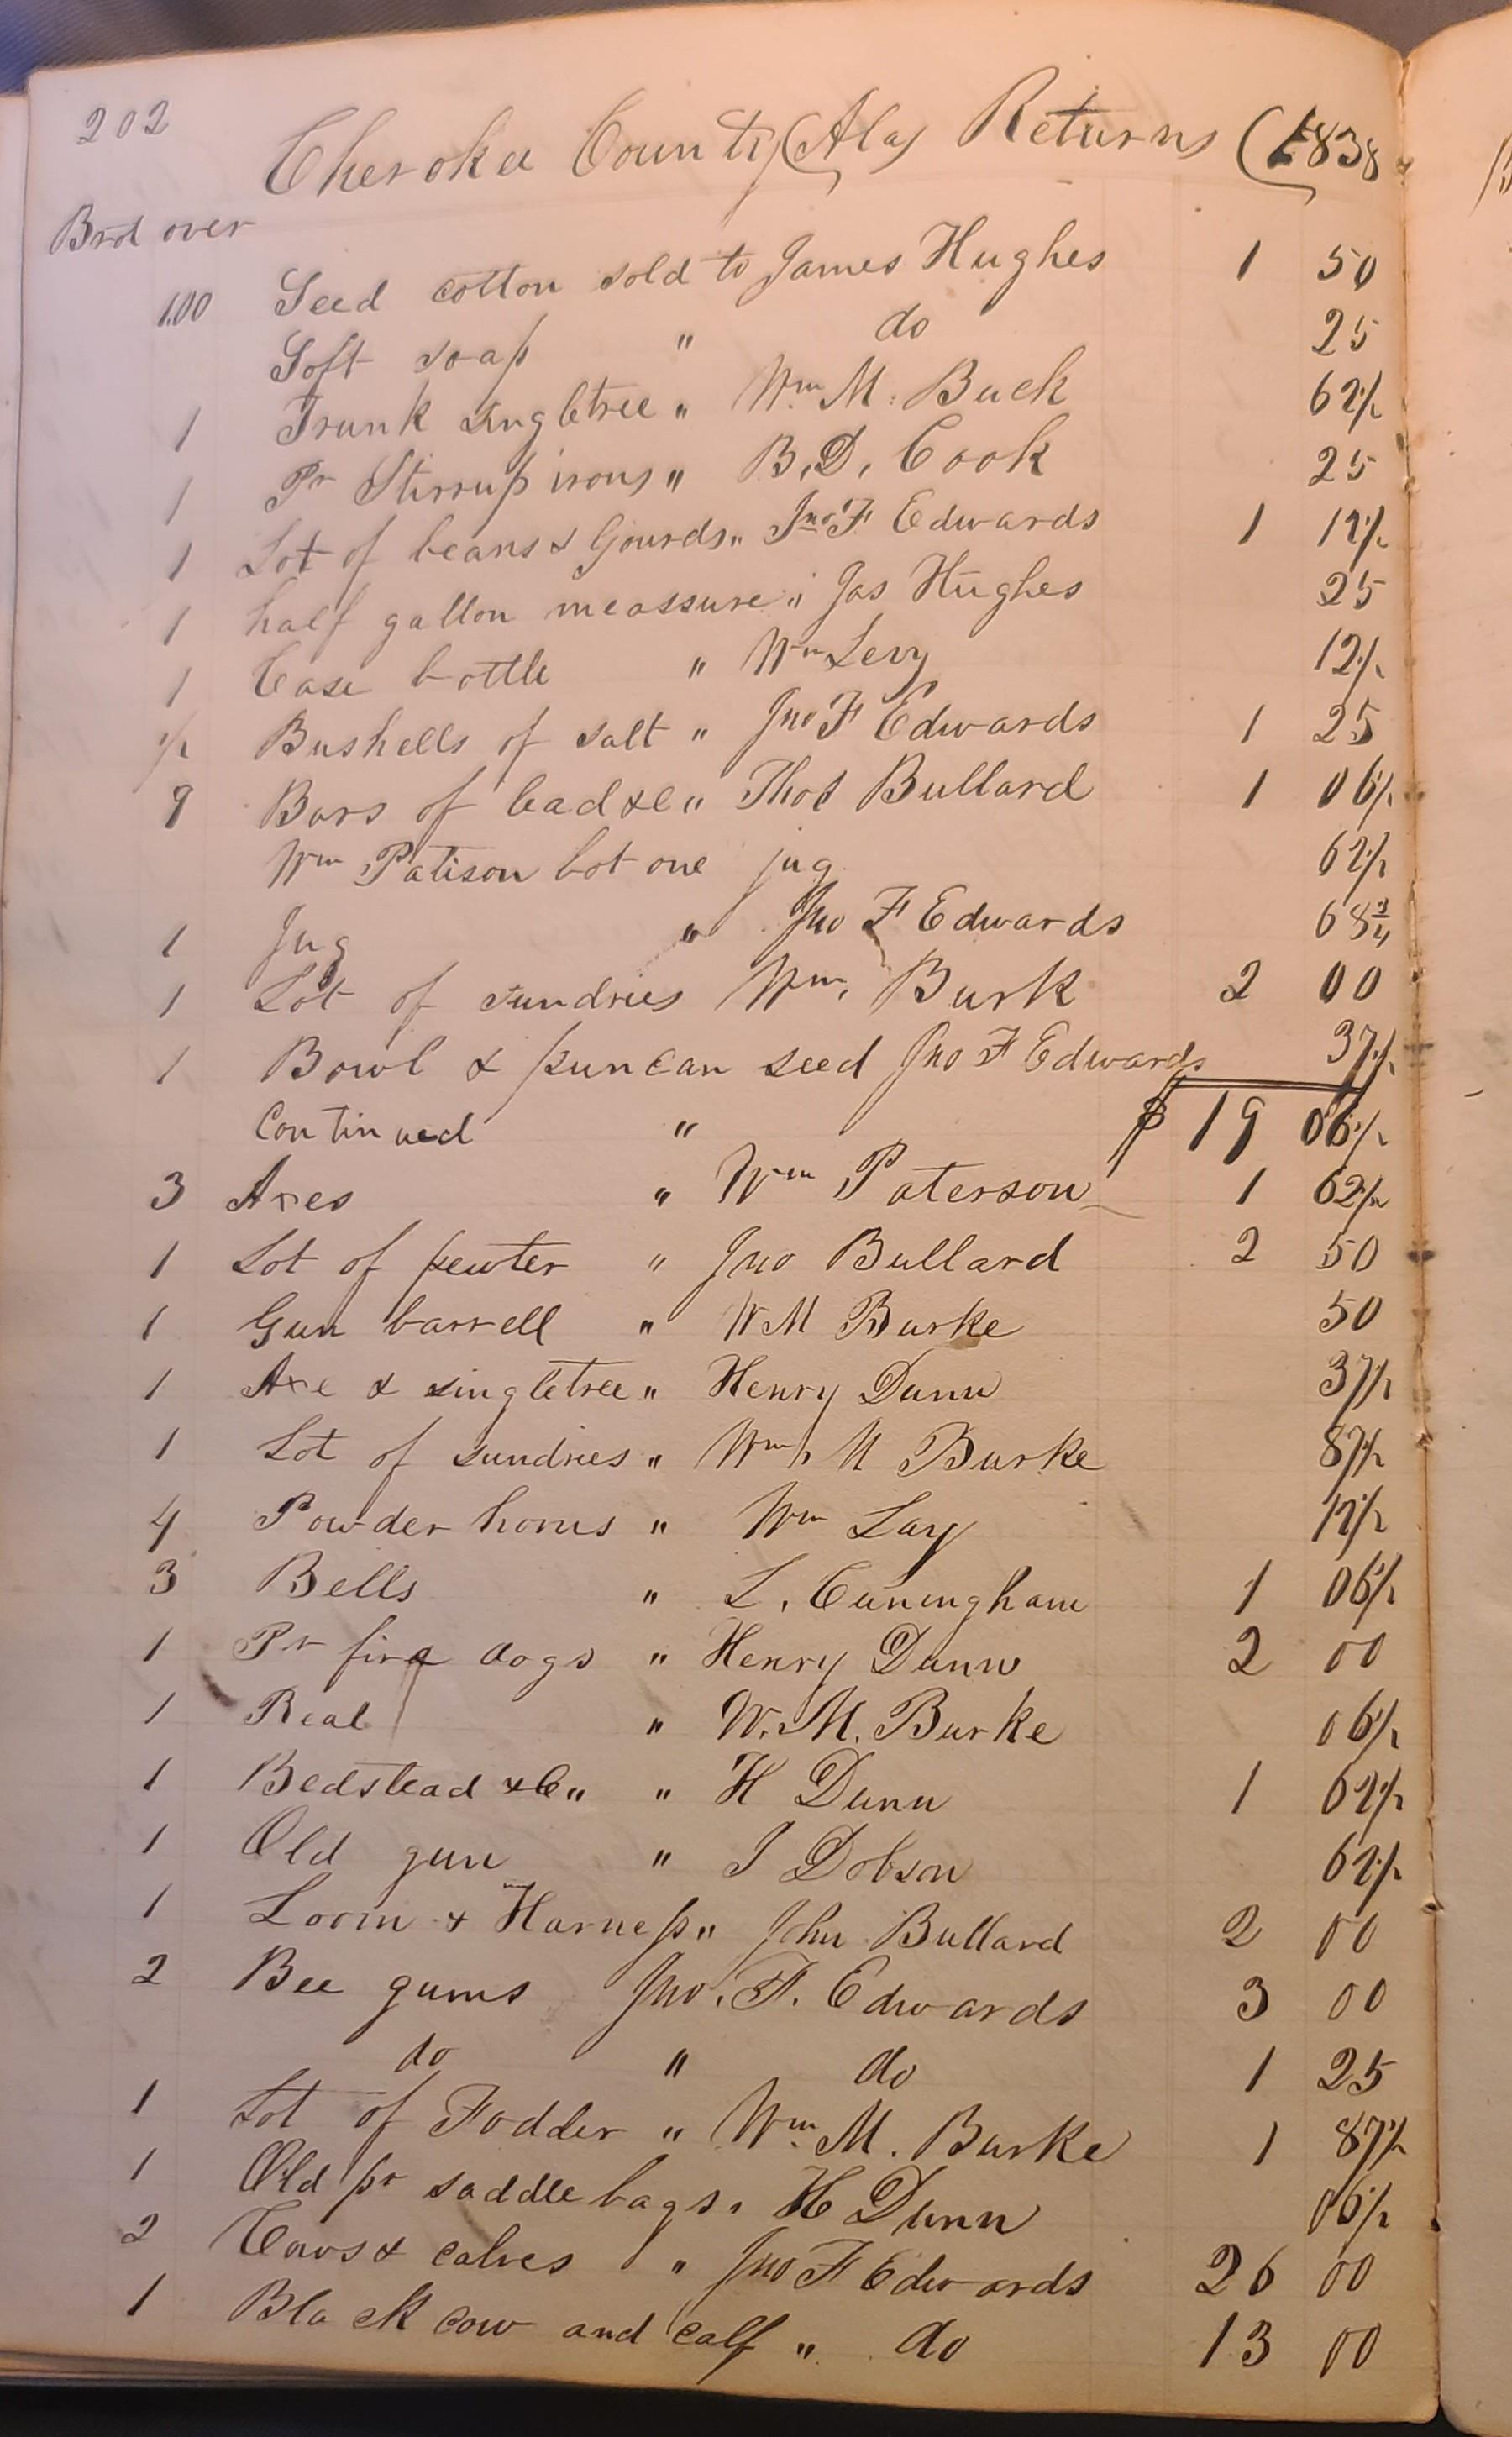 202
Cherokee County (Ala) Returns (1838
Brd over
100 Seed cotton sold to James Hughes 1 50
Soft soap " do 25
1 Trunk singletree " Wm M. Buck 62½
1 Pr Stirrup irons " B. D. Cook 25
1 Lot of beans & Gourds " Jno F Edwards 1 12½
1 half gallon meassure " Jas Hughes 25
1 Case bottle " Wm Levy 12½
½ Bushells of salt " Jno F Edwards 1 25
9 Bars of lead &c " Thos Bullard 1 06½
Wm Patison bot one jug 62½
1 Jug " Jno F Edwards 68¾
1 Lot of sundries Wm. Burk 2 00
1 Bowl & puncan seed Jno F Edwards 37½
Continued " $ 19 06½
3 Axes " Wm Paterson 1 62½
1 Lot of pewter " Jno Bullard 2 50
1 Gun barrell " W M Burke 50
1 Axe & singletree " Henry Dunn 37½
1 Lot of sundries " Wm M Burke 87½
4 Powder horns " Wm Lay 12½
3 Bells " L. Cuningham 1 06½
1 Pr fire dogs " Henry Dunn 2 00
1 Real " W. M. Burke 06½
1 Bedstead &C " " H Dunn 1 62½
1 Old gun " J Dobson 62½
1 Loom & Harness " John Bullard 2 00
2 Bee gums Jno. F. Edwards 3 00
do " do 1 25
1 Lot of Fodder " Wm. M. Burke 1 87½
1 Old pr saddle bags " H Dunn 06½
2 Cows & calves " Jno F Edwards 26 00
1 Black cow and calf " do 13 00